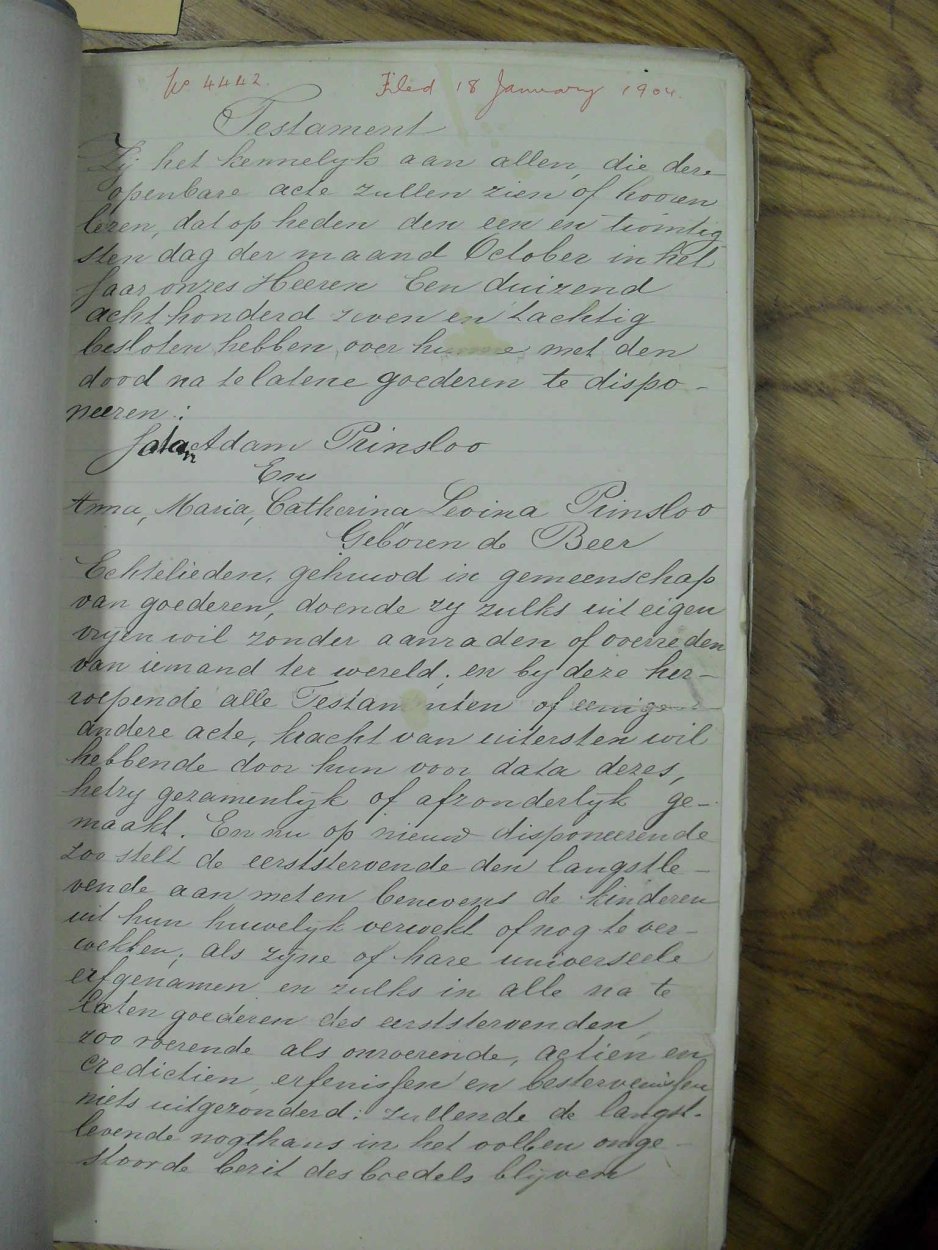 No 4442. Filed 18 January 1904.
Testament
Zij het kennelyk aan allen, die deze
openbare acte zullen zien of hooren
lezen, dat op heden den een en twintig
sten dag der maand October in het
Jaar onzes Heeren Een duizend
acht honderd zeven en tachtig
besloten hebben over hunne met den
dood na te latene goederen te dispo-
neeren:
Adam Prinsloo
En
Anna, Maria, Catherina Levina Prinsloo
Geboren de Beer
Echtelieden, gehuwd in gemeenschap
van goederen, doende zy zulks uit eigen
vryen wil zonder aanraden of overreden
van iemand ter wereld; en by deze her-
roepende alle Testamenten of eenige
andere acte, kracht van uitersten wil
hebbende door hun voor data dezes,
hetzy gezamenlyk of afzonderlyk ge-
maakt. En nu op nieuw disponeerende
zoo stelt de eerststervende den langstle-
vende aan met en benevens de kinderen
uit hun huwelyk verwekt of nog te ver-
wekken, als zyne of hare universeele
erfgenamen en zulks in alle na te
laten goederen des eerststervenden,
zoo roerende als onroerende, actien en
credictien, erfenissen en bestervenissen
niets uitgezonderd: zullende de langst-
levende nogthans in het vollen onge-
stoorde bezit des boedels blijven